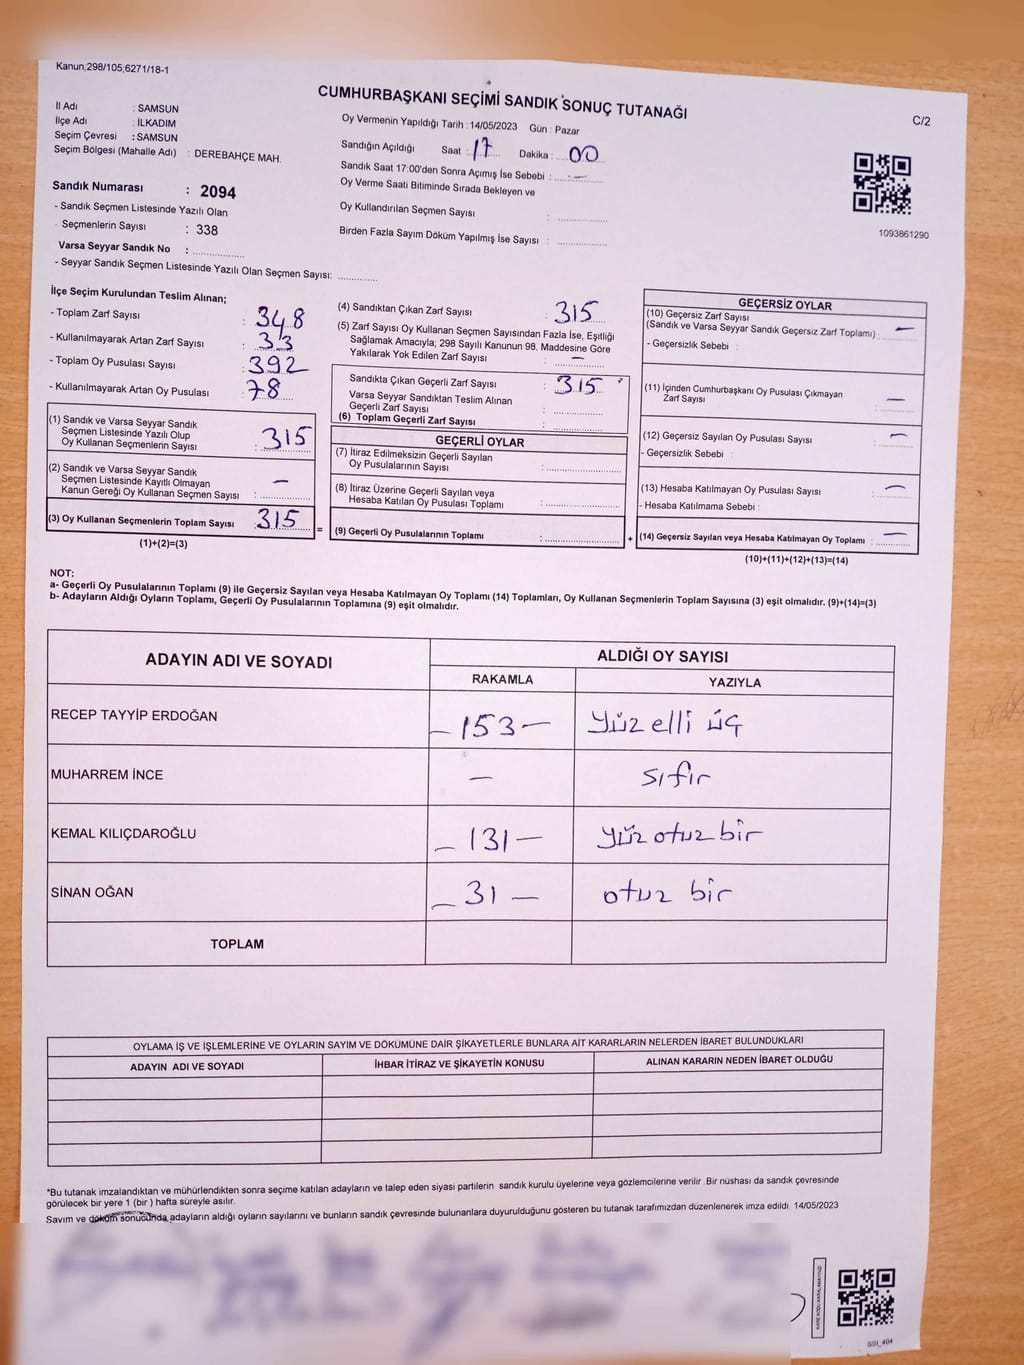 Kanun;298/105,6271/18-1
CUMHURBAŞKANI SEÇİMİ SANDIK SONUÇ TUTANAĞI
C/2
İl Adı : SAMSUN
İlçe Adı : İLKADIM
Seçim Çevresi : SAMSUN
Seçim Bölgesi (Mahalle Adı) : DEREBAHÇE MAH.
Sandık Numarası : 2094
- Sandık Seçmen Listesinde Yazılı Olan
Seçmenlerin Sayısı : 338
Varsa Seyyar Sandık No :
- Seyyar Sandık Seçmen Listesinde Yazılı Olan Seçmen Sayısı:
Oy Vermenin Yapıldığı Tarih : 14/05/2023 Gün : Pazar
Sandığın Açıldığı Saat : 17 Dakika : 00
Sandık Saat 17:00'den Sonra Açımış İse Sebebi : —
Oy Verme Saati Bitiminde Sırada Bekleyen ve
Oy Kullandırılan Seçmen Sayısı :
Birden Fazla Sayım Döküm Yapılmış İse Sayısı :
1093861290
İlçe Seçim Kurulundan Teslim Alınan;
- Toplam Zarf Sayısı : 348
- Kullanılmayarak Artan Zarf Sayısı : 33
- Toplam Oy Pusulası Sayısı : 392
- Kullanılmayarak Artan Oy Pusulası : 78
(1) Sandık ve Varsa Seyyar Sandık
Seçmen Listesinde Yazılı Olup
Oy Kullanan Seçmenlerin Sayısı : 315
(2) Sandık ve Varsa Seyyar Sandık
Seçmen Listesinde Kayıtlı Olmayan
Kanun Gereği Oy Kullanan Seçmen Sayısı : —
(3) Oy Kullanan Seçmenlerin Toplam Sayısı : 315
(1)+(2)=(3)
=
(4) Sandıktan Çıkan Zarf Sayısı : 315
(5) Zarf Sayısı Oy Kullanan Seçmen Sayısından Fazla İse, Eşitliği
Sağlamak Amacıyla; 298 Sayılı Kanunun 98. Maddesine Göre
Yakılarak Yok Edilen Zarf Sayısı : —
Sandıkta Çıkan Geçerli Zarf Sayısı : 315
Varsa Seyyar Sandıktan Teslim Alınan
Geçerli Zarf Sayısı :
(6) Toplam Geçerli Zarf Sayısı :
GEÇERLİ OYLAR
(7) İtiraz Edilmeksizin Geçerli Sayılan
Oy Pusulalarının Sayısı :
(8) İtiraz Üzerine Geçerli Sayılan veya
Hesaba Katılan Oy Pusulası Toplamı :
(9) Geçerli Oy Pusulalarının Toplamı :
+
GEÇERSİZ OYLAR
(10) Geçersiz Zarf Sayısı
(Sandık ve Varsa Seyyar Sandık Geçersiz Zarf Toplamı) : —
- Geçersizlik Sebebi :
(11) İçinden Cumhurbaşkanı Oy Pusulası Çıkmayan
Zarf Sayısı : —
(12) Geçersiz Sayılan Oy Pusulası Sayısı : —
- Geçersizlik Sebebi :
(13) Hesaba Katılmayan Oy Pusulası Sayısı : —
- Hesaba Katılmama Sebebi :
(14) Geçersiz Sayılan veya Hesaba Katılmayan Oy Toplamı : —
(10)+(11)+(12)+(13)=(14)
NOT:
a- Geçerli Oy Pusulalarının Toplamı (9) ile Geçersiz Sayılan veya Hesaba Katılmayan Oy Toplamı (14) Toplamları, Oy Kullanan Seçmenlerin Toplam Sayısına (3) eşit olmalıdır. (9)+(14)=(3)
b- Adayların Aldığı Oyların Toplamı, Geçerli Oy Pusulalarının Toplamına (9) eşit olmalıdır.
ADAYIN ADI VE SOYADI
ALDIĞI OY SAYISI
RAKAMLA YAZIYLA
RECEP TAYYİP ERDOĞAN — 153 — Yüz elli üç
MUHARREM İNCE — sıfır
KEMAL KILIÇDAROĞLU — 131 — Yüz otuz bir
SİNAN OĞAN — 31 — otuz bir
TOPLAM
OYLAMA İŞ VE İŞLEMLERİNE VE OYLARIN SAYIM VE DÖKÜMÜNE DAİR ŞİKAYETLERLE BUNLARA AİT KARARLARIN NELERDEN İBARET BULUNDUKLARI
ADAYIN ADI VE SOYADI İHBAR İTİRAZ VE ŞİKAYETİN KONUSU ALINAN KARARIN NEDEN İBARET OLDUĞU
*Bu tutanak imzalandıktan ve mühürlendikten sonra seçime katılan adayların ve talep eden siyasi partilerin sandık kurulu üyelerine veya gözlemcilerine verilir .Bir nüshası da sandık çevresinde
görülecek bir yere 1 (bir ) hafta süreyle asılır.
Sayım ve döküm sonucunda adayların aldığı oyların sayılarını ve bunların sandık çevresinde bulunanlara duyurulduğunu gösteren bu tutanak tarafımızdan düzenlenerek imza edildi. 14/05/2023
KARE KODU KARALAMAYINIZ!
GSI_404